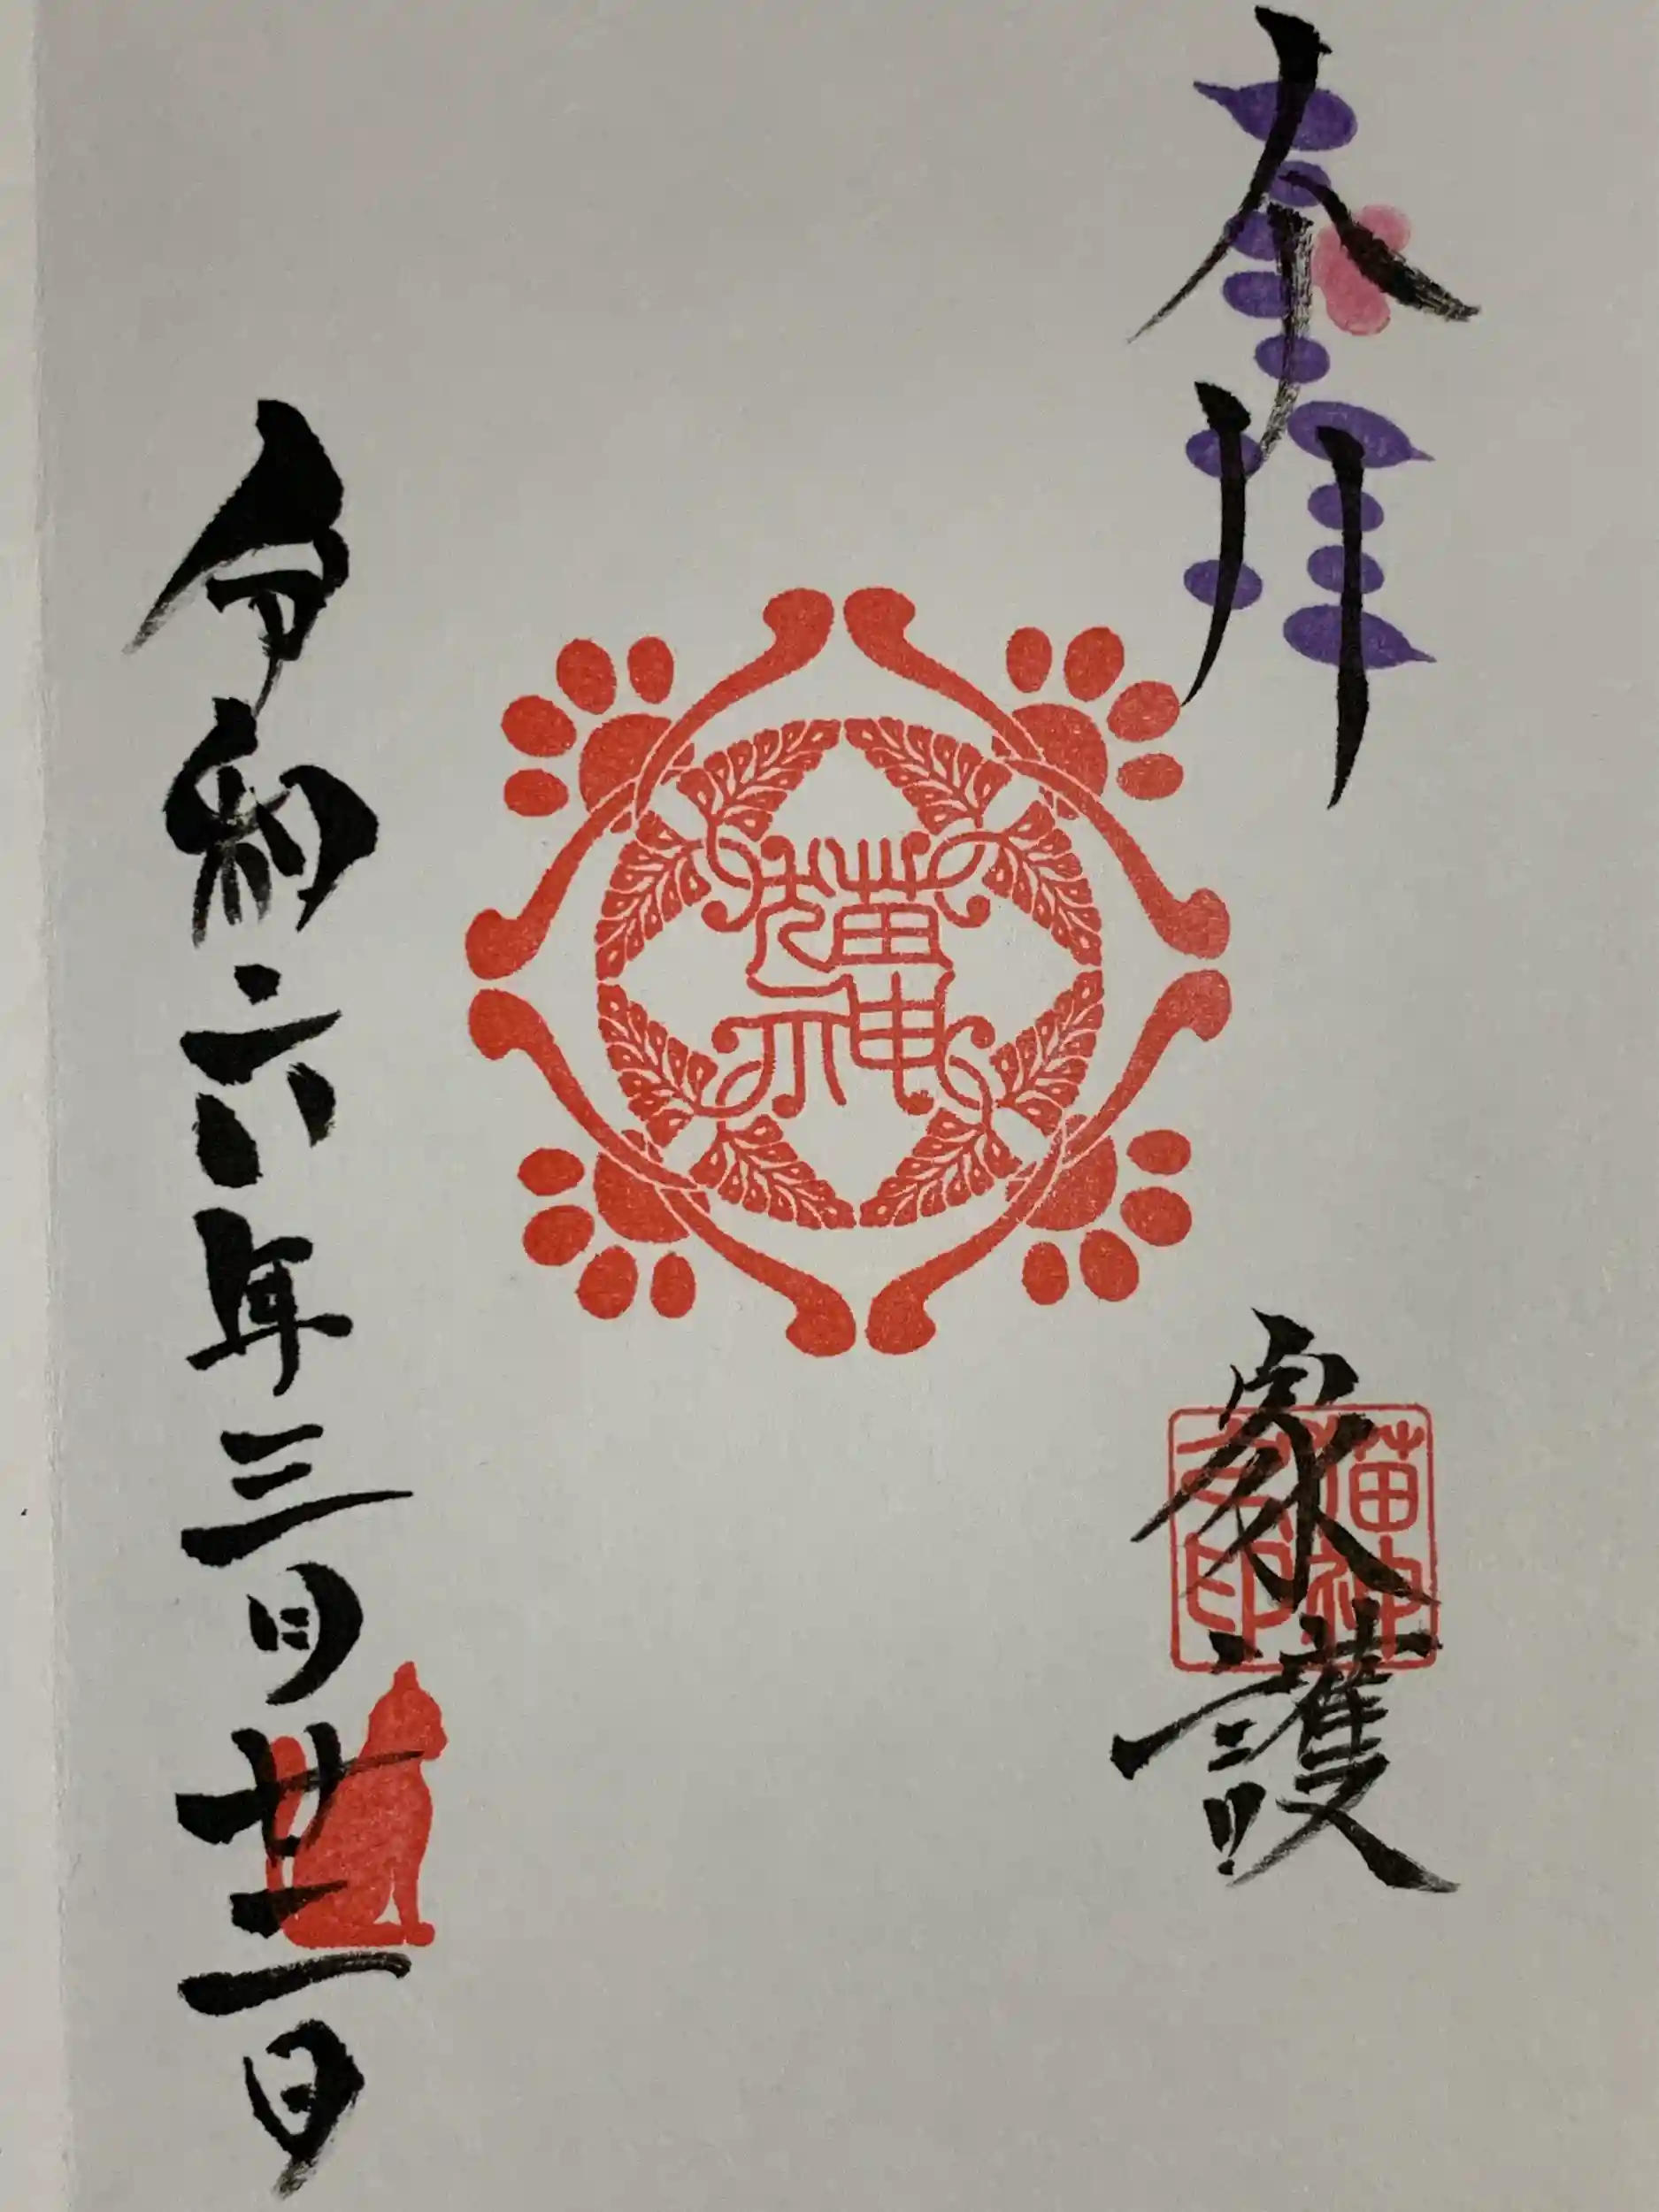 奉拝
猫神
家護
猫神
印
令和六年三月廿二日